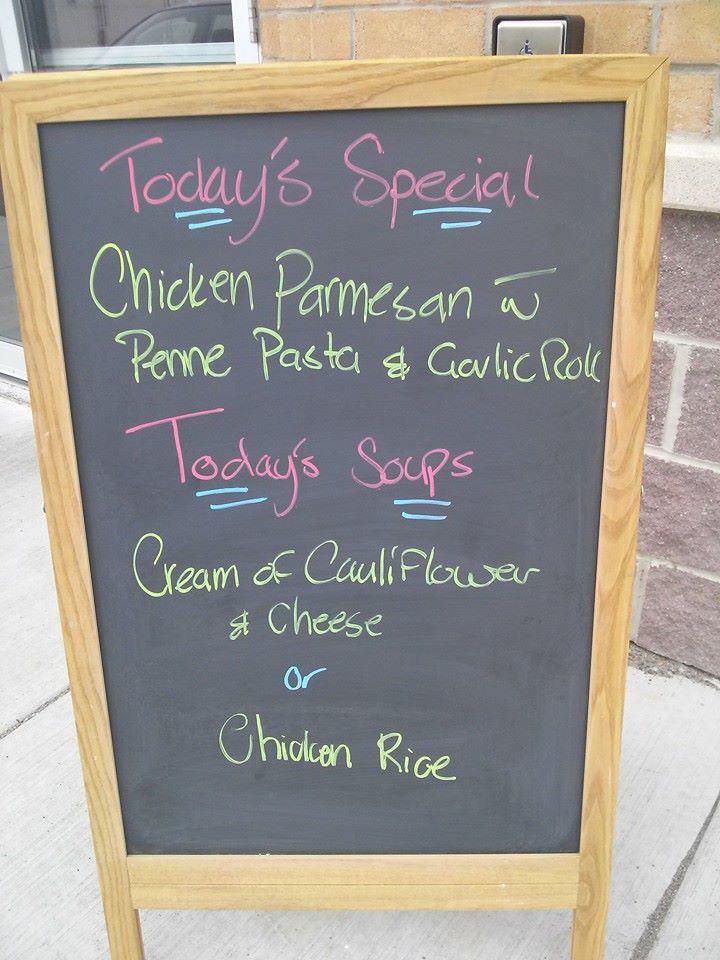 Today's Special
Chicken Parmesan w̅
Penne Pasta & Garlic Roll
Today's Soups
Cream of Cauliflower
& Cheese
or
Chicken Rice